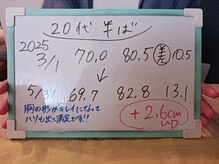 20代半ば
2025
3/1 70.0 80.5 差 10.5
↓
5/31 69.7 82.8 13.1
胸の形がキレイになって
ハリも出て満足です!!
+2.6cm
up